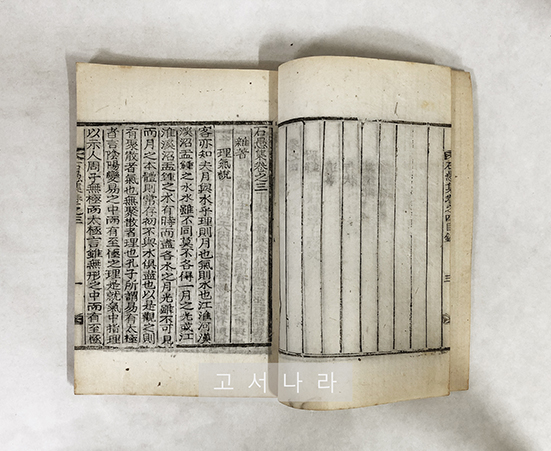 石愚集卷之四目錄
三
石愚集卷之三
雜著
理氣說
客亦知夫月與水乎理則月也氣則水也江淮河漢
溪沼盂鍾之水水雖不同莫不各得一月之光或江
淮溪沼盂鍾之水有時而盡各水之月光雖不可見
而月之本體則常存初不與水俱盡也以是觀之則
有聚散者氣也無聚散者理也孔子所謂易有太極
者言陰陽變易之中而有至極之理是就氣中指理
以示人周子無極而太極言雖無形之中而有至極
石愚集卷之三
一
고서나라